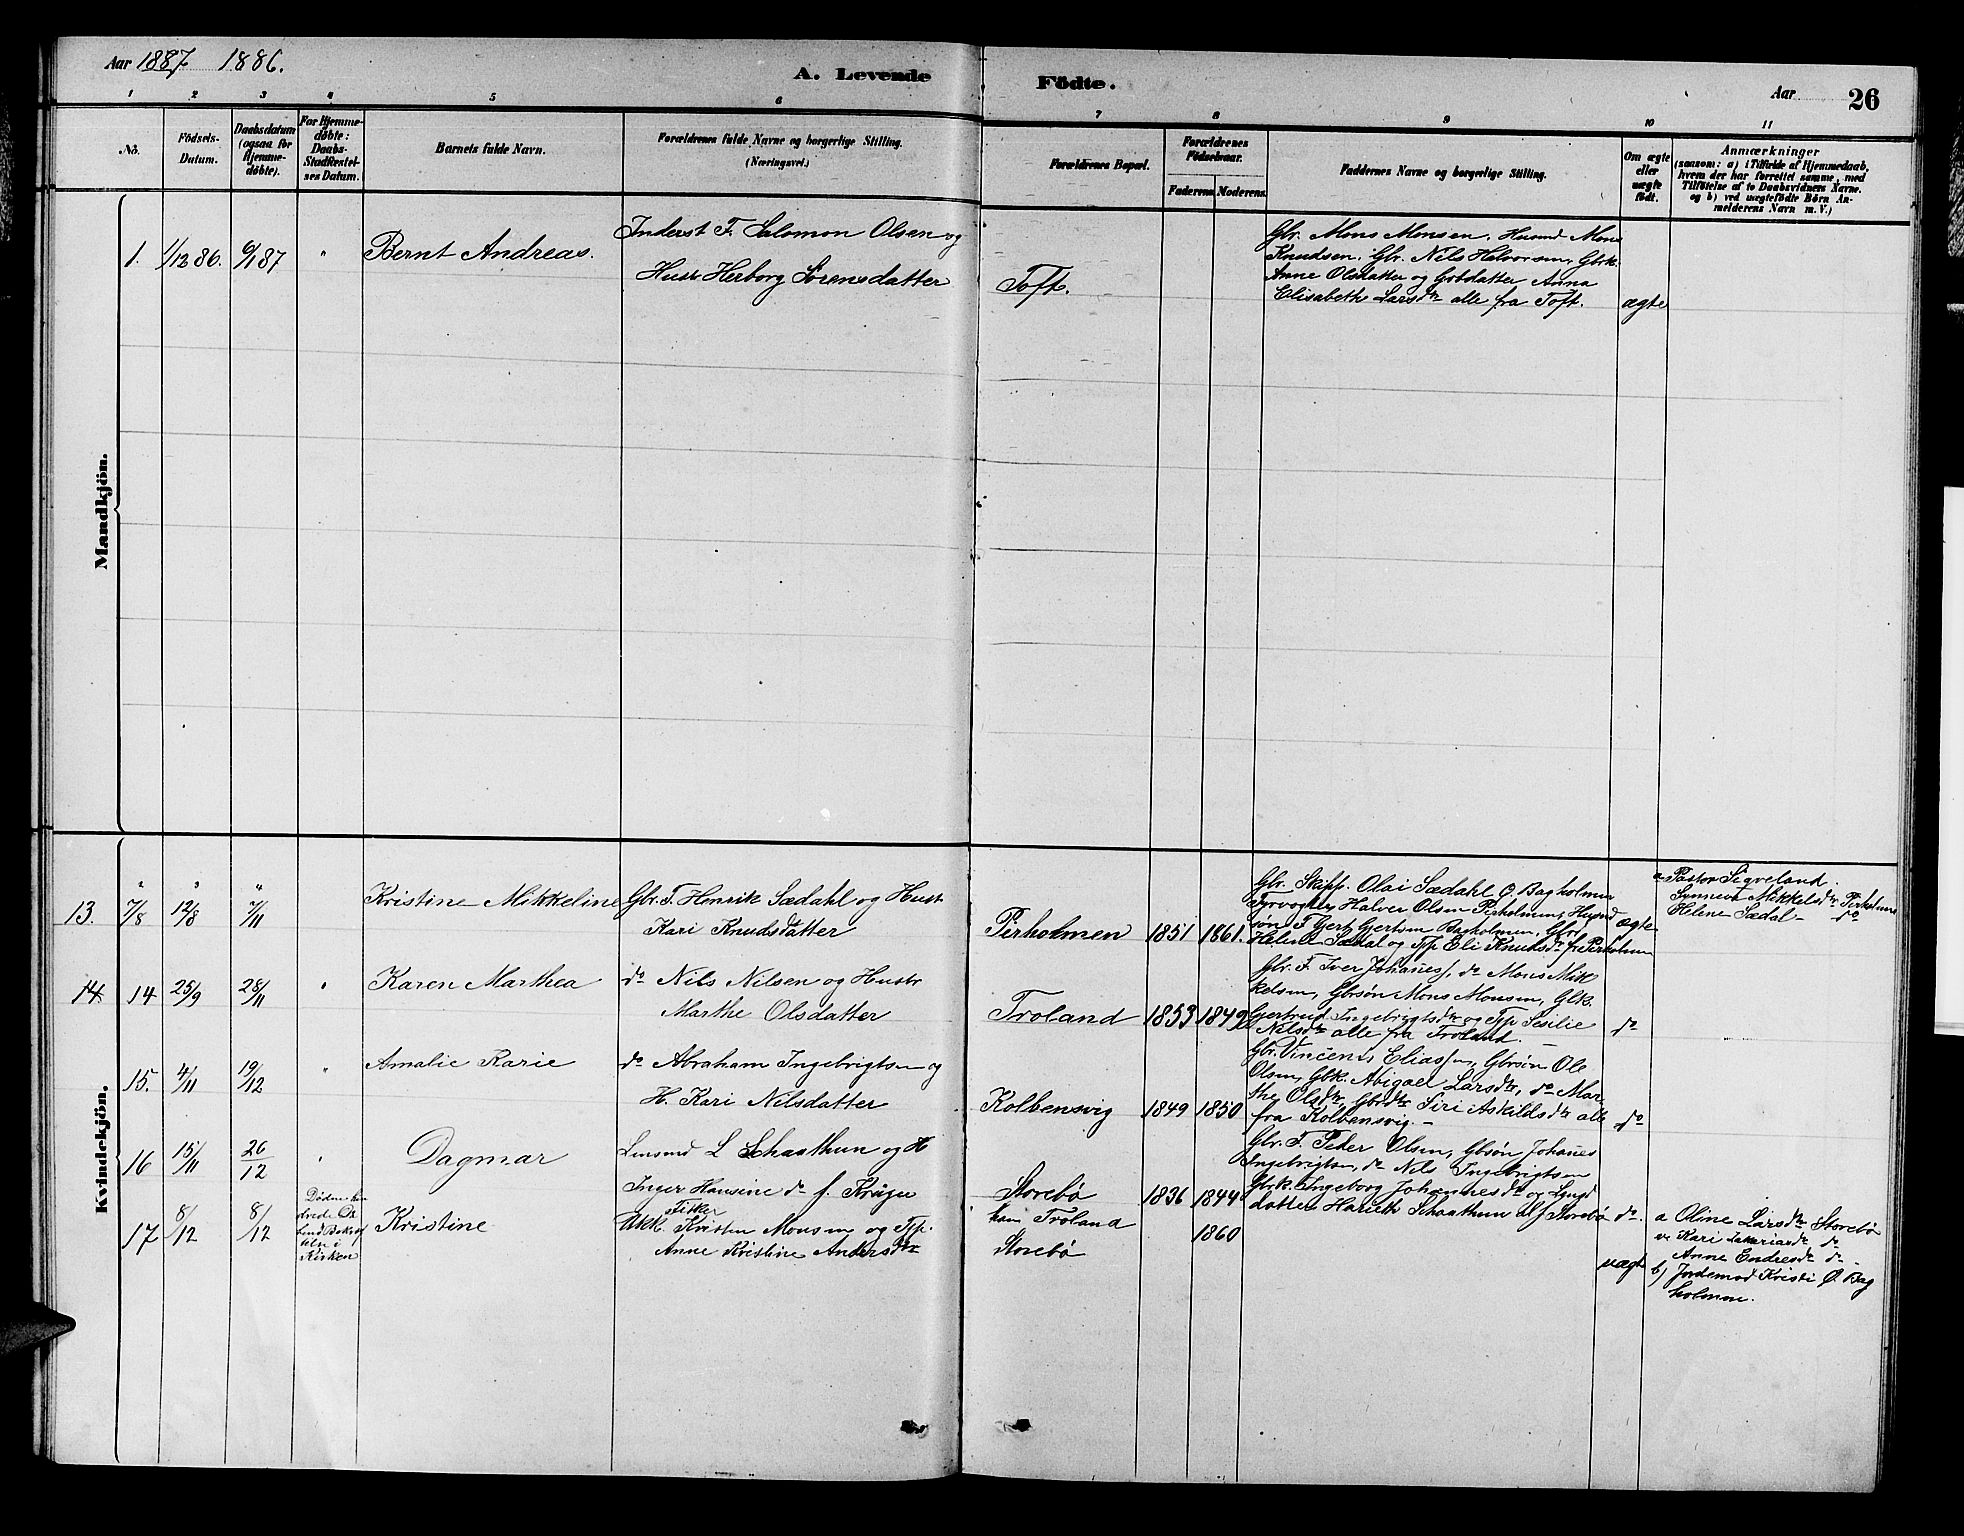 Aar 1887 1886.
A. Levende Födte.
Aar
26
1 2 3 4 5 6 7 8 9 10 11
No.
Födsels-Datum.
Daabsdatum (ogsaa for Hjemme-döbte).
For Hjemme-döbte: Daabs-Stadfæstel-ses Datum.
Barnets fulde Navn.
Forældrenes fulde Navne og borgerlige Stilling. (Næringsvei.)
Forældrenes Bopæl.
Forældrenes Födselsaar.
Faderens. Moderens.
Faddernes Navne og borgerlige Stilling.
Om ægte eller uægte födt.
Anmærkninger
(saasom: a) i Tilfælde af Hjemmedaab,
hvem der har forrettet samme, med
Tilföielse af to Daabsvidners Navne.
og b) ved uægtefödte Börn An-
melderens Navn m. V.)
Mandkjön.
1. 1/12 86. 6/1 87 " Bernt Andreas.
Inderst F. Salomon Olsen og
Hustr Herborg Sörensdatter
Toft.
Gbr. Mons Monsen, Husmd Mons
Knudsen, Gbr. Nils Halvorsen, Gbrk.
Anne Olsdatter og Gbdatter Anna
Elisabeth Larsdtr alle fra Toft.
ægte
Kvindekjön.
13. 7/8 12/8 7/11
Kristine Mikkeline
Gbr. F. Henrik Sædahl og Hustr
Kari Knudsdatter
Pirholmen 1851 1861.
Gbr. Skipp. Olai Sædahl Ø Bagholmen
Fyrvogter Halver Olsen Pirholmen, Husmd
søn F Gjert Gjertsen Bagholmen, Gbr
Helene Sædal og Tjp Eli Knudsdtr fr Pirholmen
ægte
a Pastor Sigveland.
Synneva Mikkelsdtr Pirholmen
Helene Sædal - do
14 14 25/9 28/11 " Karen Marthea
do Nils Nilsen og Hustr
Marthe Olsdatter
Troland 1853 1849
Gbr. F. Iver Johanes, do Mons Mik
kelsen, Gbrsön Mons Monsen, Gbk.
Gjertrud Ingebrigtsdtr og Tjp Sesilie
Nilsdtr alle fra Troland.
do
15. 4/11 19/12 " Amalie Karie
do Abraham Ingebrigtsen og
H. Kari Nilsdatter
Kolbensvig 1849 1850
Gbr. Vincents Eliassen, Gbrsön Ole
Olsen, Gbk. Abigael Larsdtr, do Mar
the Olsdtr, Gbrdtr Siri Askildsdtr alle
fra Kolbensvig. -
do
16 15/11 26/12 " Dagmar
Lensmd L Schaathun og H
Inger Hansine do f. Krüger
Storebø 1836 1844
Gbr. F. Peder Olsen, Gbsön Johanes
Ingebrigtsen, do Nils Ingebrigtsen
Gbrk. Ingeborg Johannesdtr og
datter Harieth Schaathun alle f Storebø
do.
17 8/12 8/12
Kirken
Kristine
Fisker
Kristen Monsen og Tjp.
Anne Kristine Andersdtr
ham Troland
Storebø
1860
uægte
a Oline Larsdtr Storebø
v. Kari Zakariasdtr do
Anne Endresdtr do -
b) Jordemod Kristi Ø. Bag
holmen.